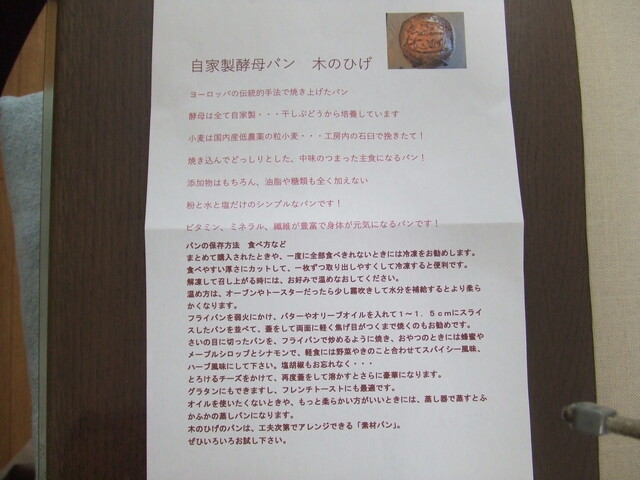 自家製酵母パン　木のひげ
ヨーロッパの伝統的手法で焼き上げたパン
酵母は全て自家製・・・干しぶどうから培養しています
小麦は国内産低農薬の粒小麦・・・工房内の石臼で挽きたて！
焼き込んでどっしりとした、中味のつまった主食になるパン！
添加物はもちろん、油脂や糖類も全く加えない
粉と水と塩だけのシンプルなパンです！
ビタミン、ミネラル、繊維が豊富で身体が元気になるパンです！
パンの保存方法　食べ方など
まとめて購入されたときや、一度に全部食べきれないときには冷凍をお勧めします。
食べやすい厚さにカットして、一枚ずつ取り出しやすくして冷凍すると便利です。
解凍して召し上がる時には、お好みで温めなおしてください。
温め方は、オーブンやトースターだったら少し霧吹きして水分を補給するとより柔ら
かくなります。
フライパンを弱火にかけ、バターやオリーブオイルを入れて１〜１．５ｃｍにスライ
スしたパンを並べて、蓋をして両面に軽く焦げ目がつくまで焼くのもお勧めです。
さいの目に切ったパンを、フライパンで炒めるように焼き、おやつのときには蜂蜜や
メープルシロップとシナモンで、軽食には野菜やきのこと合わせてスパイシー風味、
ハーブ風味にして下さい。塩胡椒もお忘れなく・・・
とろけるチーズをかけて、再度蓋をして溶かすとさらに豪華になります。
グラタンにもできますし、フレンチトーストにも最適です。
オイルを使いたくないときや、もっと柔らかい方がいいときには、蒸し器で蒸すとふ
かふかの蒸しパンになります。
木のひげのパンは、工夫次第でアレンジできる「素材パン」。
ぜひいろいろお試し下さい。